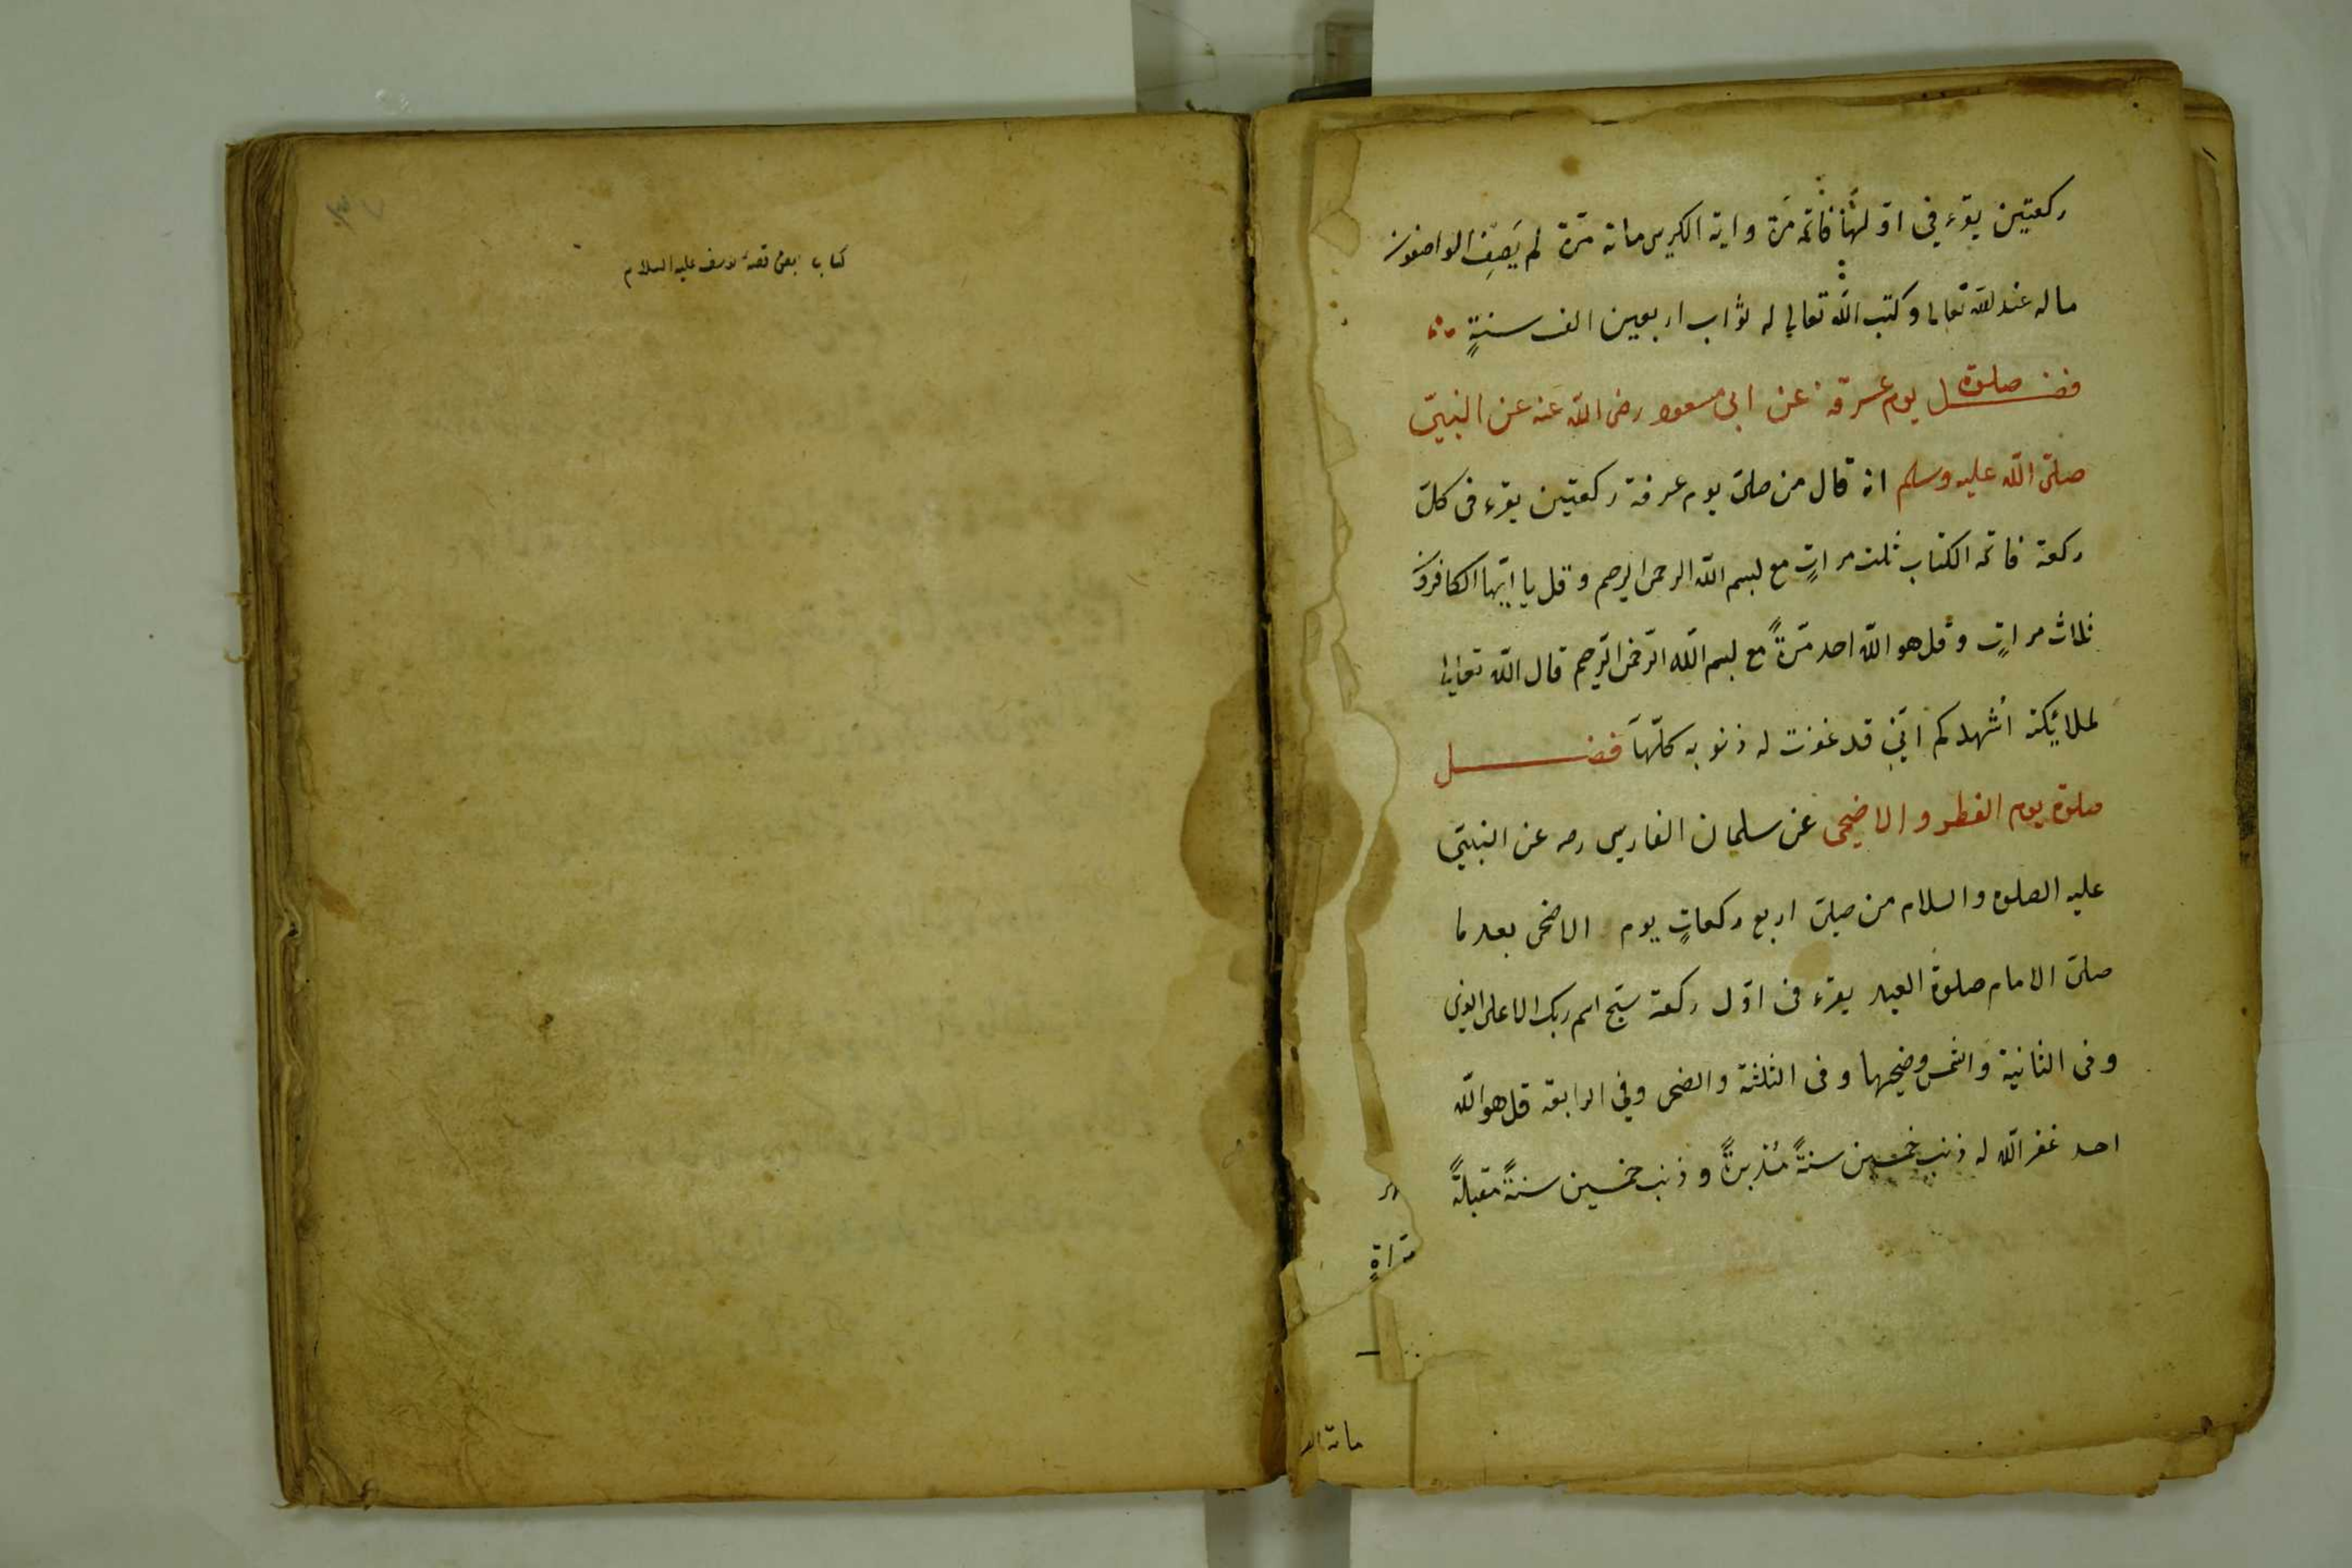 ركعتين يقرء في اوّلهما فاتحه مَرّة واية الكريسى مائة مَرّة لم يَصِف الواصفون
ماله عند الله تعالى وكتب الله تعالى له ثواب اربعين الف سنةٍ
فضــل صلوة يوم عرفة عن ابى مسعود رضى الله عنه عن النبىّ
صلّى الله عليه وسلم انه قال من صلىّ يوم عرفة ركعتين يقرء فى كلّ
ركعة فاتحه الكتاب ثلث مراتٍ مع بسم الله الرحمن الرحيم وقل يا ايّها الكافرون
ثلاث مراتٍ وقل هو الله احد مَرّةً مع بسم الله الرّحمن الرّحيم قال الله تعالى
لملائِكته اُشهدكم انّى قد غفرت له ذنوبه كلّهاَ فضــــل
صلوة يوم الفطر والاضحى عن سلمان الفارسى رضه عن النبىّ
عليه الصلوة والسلام من صلىّ اربع ركعاتٍ يوم الاضحى بعد ما
صلىّ الامام صلوةَ العيد يقرء فى اوّل ركعة سبّح اسم ربك الاعلى الذى
وفى الثانية والشمس وضحيها وفى الثلثة والضحى وفي الرابعة قل هو الله
احد غفر الله له ذنب خمسين سنةً مُدْبرةً وذنب خمسين سنةً مقبلةً
مائة الف
كتاب بعض قصهٔ يوسف عليه السلام